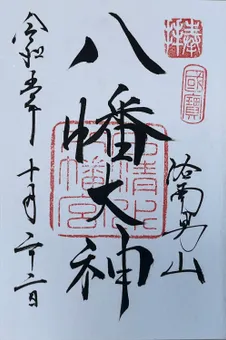 奉拝
國寶
洛南男山
八幡大神
石清水八幡宮
令和五年十月二十二日